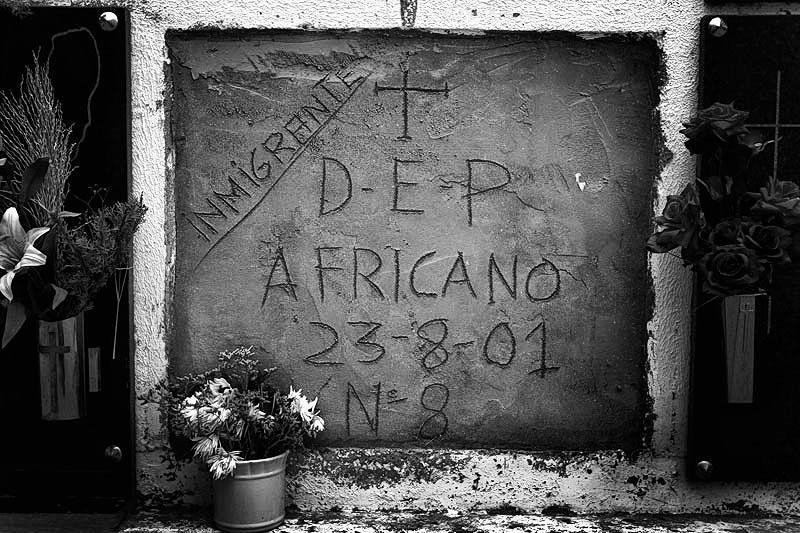 INMIGRANTE
D-E-P
AFRICANO
23-8-01
Nº 8